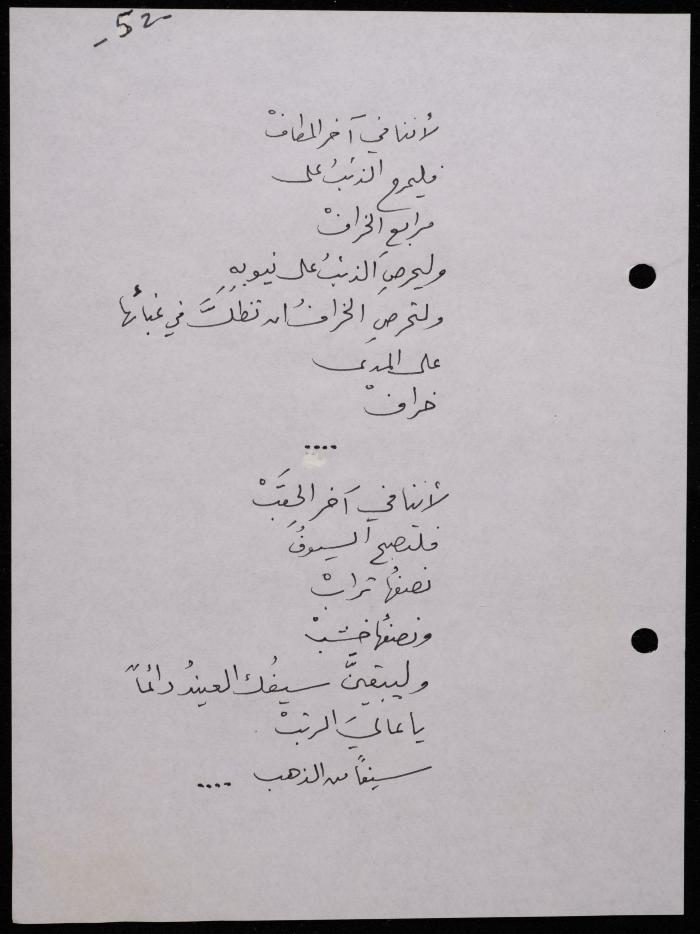 -52-
لأننا في آخر المطافْ
فليمرح الذئبُ على
مرابعِ الخرافْ
وليحرصِ الذئبُ على نيوبِهِ
ولتحرصِ الخرافُ ان تظلَّ في غبائها
على المدى
خرافْ
....
لأننا في آخر الحِقَبْ
فلتصبح السيوفُ
نصفُها ترابْ
ونصفُها خشبْ
وليبقينَّ سيفُك العنيدُ دائماً
يا عاليَ الرتبْ
سيفاً من الذهب ....